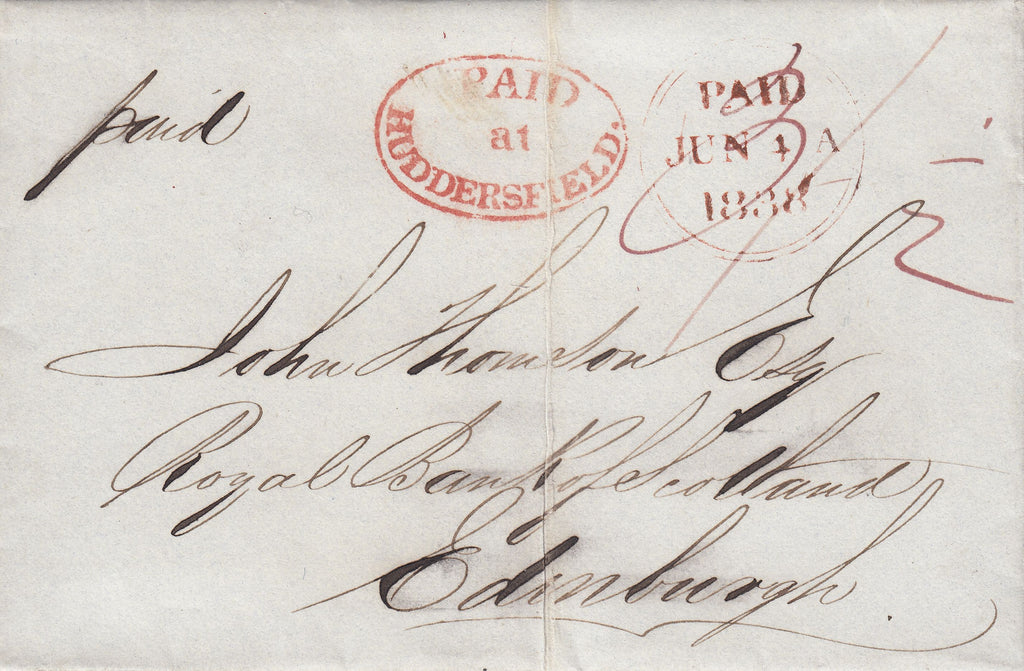 paid
PAID
at
HUDDERSFIELD.
PAID
JUN 1 A
1838
John Thomson Esq
Royal Bank of Scotland
Edinburgh